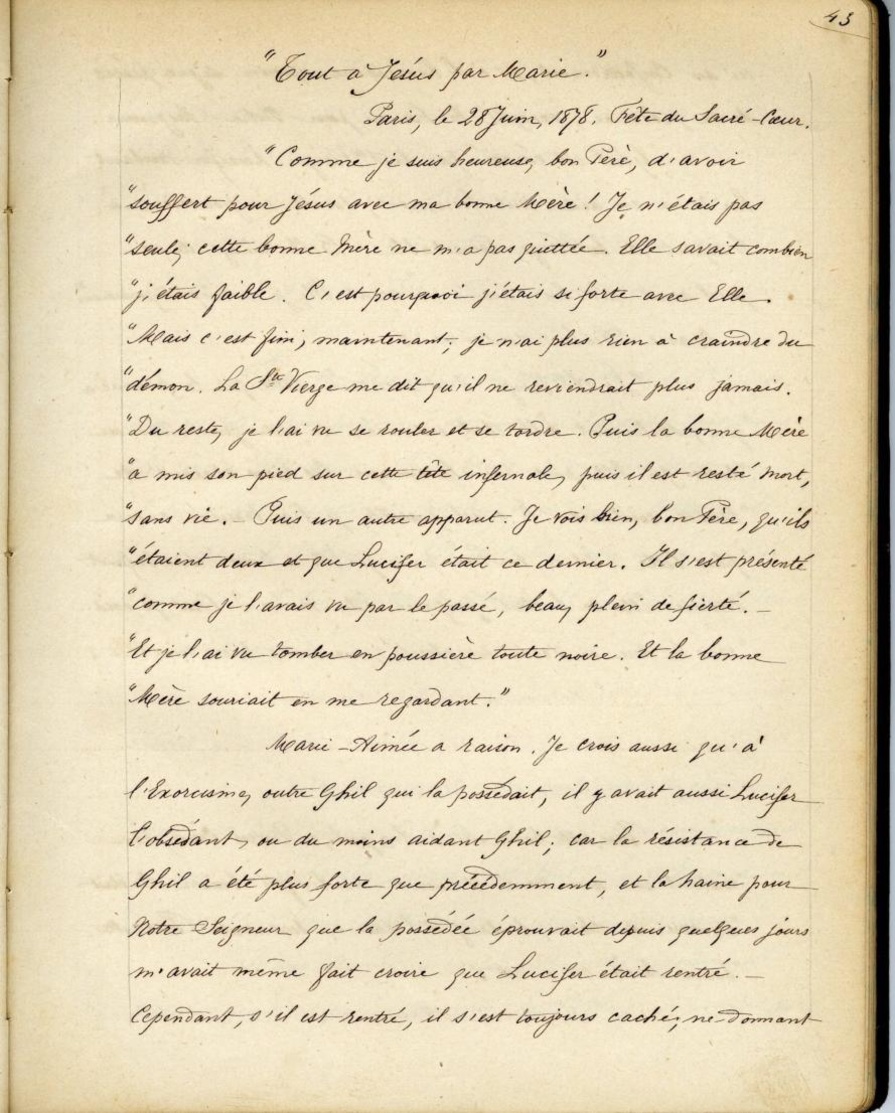 43
"Tout à Jésus par Marie."
Paris, le 28 Juin, 1878. Fête du Sacré-Cœur.
"Comme je suis heureuse, bon Père, d'avoir
"souffert pour Jésus avec ma bonne Mère ! Je n'étais pas
"seule; cette bonne Mère ne m'a pas quittée. Elle savait combien
"j'étais faible. C'est pourquoi j'étais si forte avec Elle.
"Mais c'est fini, maintenant; je n'ai plus rien à craindre du
"démon. La Ste Vierge me dit qu'il ne reviendrait plus jamais.
"Du reste, je l'ai vu se rouler et se tordre. Puis la bonne Mère
"a mis son pied sur cette tête infernale, puis il est resté mort,
"sans vie. — Puis un autre apparut. Je vois bien, bon Père, qu'ils
"étaient deux et que Lucifer était ce dernier. Il s'est présenté
"comme je l'avais vu par le passé, beau, plein de fierté. —
"Et je l'ai vu tomber en poussière toute noire. Et la bonne
"Mère souriait en me regardant."
Marie-Aimée a raison. Je crois aussi qu'à
l'Exorcisme, outre Ghil qui la possédait, il y avait aussi Lucifer
l'obsédant, ou du moins aidant Ghil; car la résistance de
Ghil a été plus forte que précédemment, et la haine pour
Notre Seigneur que la possédée éprouvait depuis quelques jours
m'avait même fait croire que Lucifer était rentré. —
Cependant, s'il est rentré, il s'est toujours caché, ne donnant